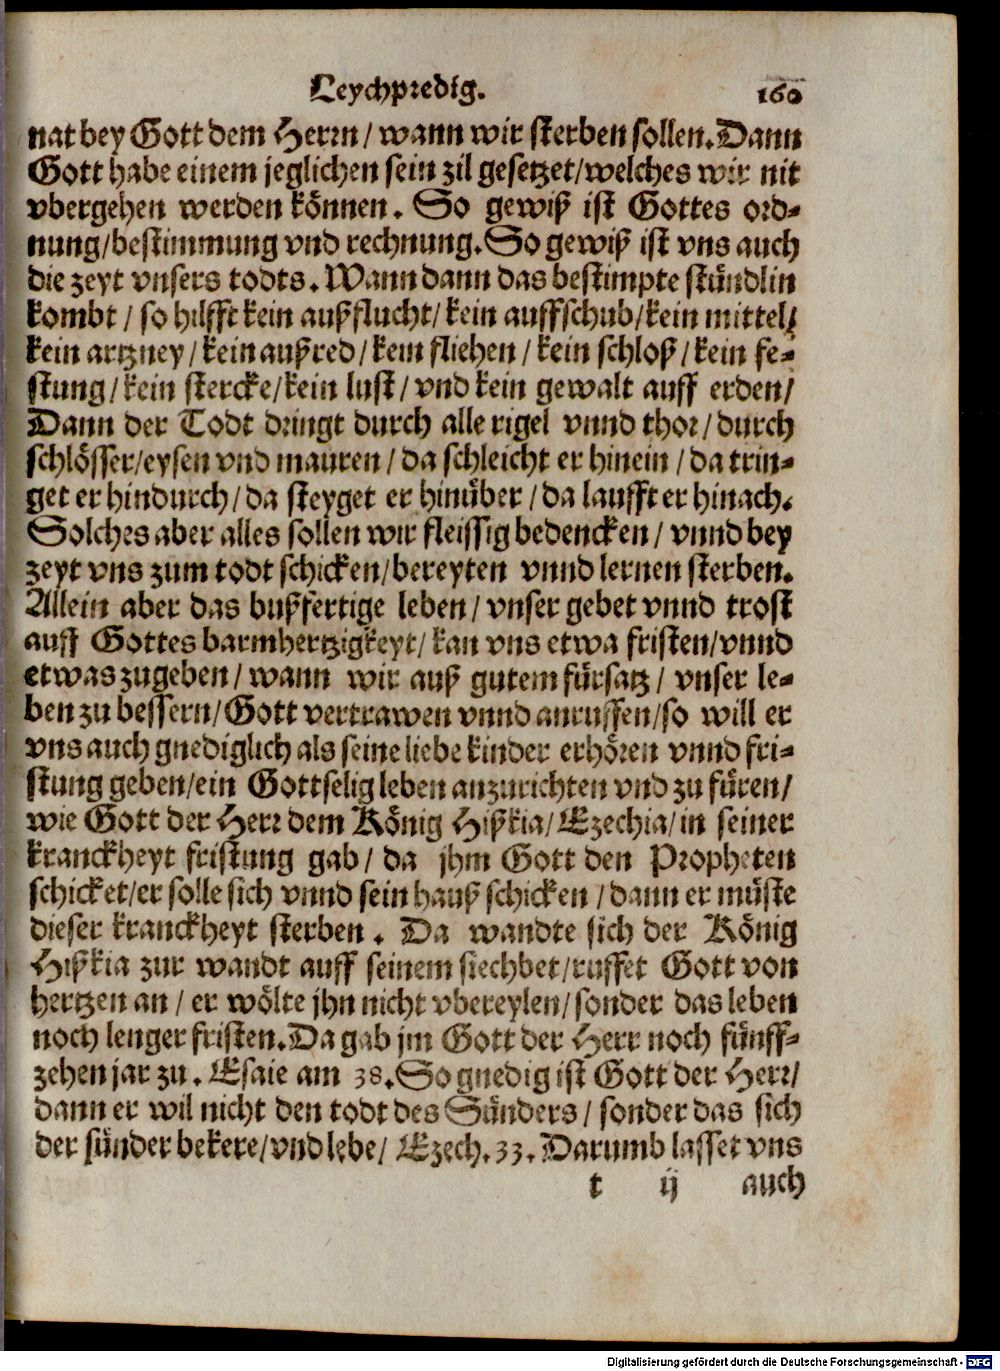 Leychpredig. 160
nat bey Gott dem Herrn / wann wir sterben sollen. Dann
Gott habe einem jeglichen sein zil gesetzet/welches wir nit
vbergehen werden können. So gewiß ist Gottes ord-
nung/bestimmung vnd rechnung. So gewiß ist vns auch
die zeyt vnsers todts. Wann dann das bestimpte stündlin
kombt / so hilfft kein außflucht/ kein auffschub/kein mittel/
kein artzney / kein außred / kein fliehen / kein schloß / kein fe-
stung / kein stercke/kein lust / vnd kein gewalt auff erden/
Dann der Todt dringt durch alle rigel vnnd thor / durch
schlösser/eysen vnd mauren / da schleicht er hinein / da trin-
get er hindurch / da steyget er hinüber / da laufft er hinach.
Solches aber alles sollen wir fleissig bedencken / vnnd bey
zeyt vns zum todt schicken/bereyten vnnd lernen sterben.
Allein aber das bußfertige leben / vnser gebet vnnd trost
auff Gottes barmhertzigkeyt/ kan vns etwa fristen/vnnd
etwas zugeben / wann wir auß gutem fürsatz / vnser le-
ben zu bessern/Gott vertrawen vnnd anruffen/so will er
vns auch gnediglich als seine liebe kinder erhören vnnd fri-
stung geben/ein Gottselig leben anzurichten vnd zu füren/
wie Gott der Herr dem König Hißkia/ Ezechia/in seiner
kranckheyt fristung gab / da jhm Gott den Propheten
schicket/er solle sich vnnd sein hauß schicken / dann er müste
dieser kranckheyt sterben . Da wandte sich der König
Hißkia zur wandt auff seinem siechbet/ruffet Gott von
hertzen an / er wölte jhn nicht vbereylen/sonder das leben
noch lenger fristen. Da gab jm Gott der Herr noch fünff-
zehen jar zu . Esaie am 38. So gnedig ist Gott der Herr/
dann er wil nicht den todt des Sünders / sonder das sich
der sünder bekere/vnd lebe/ Ezech. 33. Darumb lasset vns
t ij auch
Digitalisierung gefördert durch die Deutsche Forschungsgemeinschaft - DFG